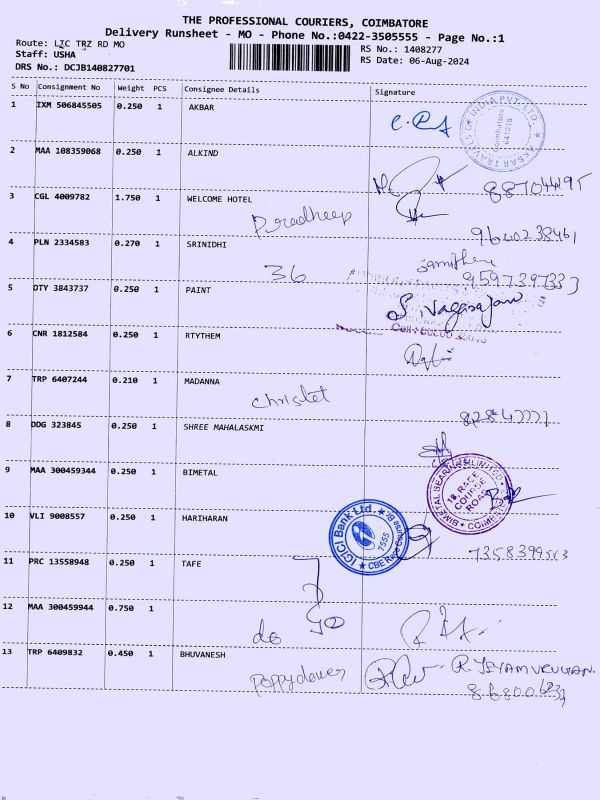 THE PROFESSIONAL COURIERS, COIMBATORE
Delivery Runsheet - MO - Phone No.:0422-3505555 - Page No.:1
Route: LIC TRZ RD MO
Staff: USHA
DRS No.: DCJB140827701
RS No.: 1408277
RS Date: 06-Aug-2024
S No Consignment No Weight PCS Consignee Details Signature
1 IXM 506845505 0.250 1 AKBAR
AKBAR TRAVELS OF INDIA PVT. LTD. Coimbatore 641018
2 MAA 108359068 0.250 1 ALKIND
3 CGL 4009782 1.750 1 WELCOME HOTEL
Pradheep
4 PLN 2334583 0.270 1 SRINIDHI
36
9597397333
5 OTY 3843737 0.250 1 PAINT
S. Nagarajan
6 CNR 1812584 0.250 1 RTYTHEM
7 TRP 6407244 0.210 1 MADANNA
Christet
8 DDG 323845 0.250 1 SHREE MAHALASKMI
9 MAA 300459344 0.250 1 BIMETAL
BIMETAL BEARINGS LIMITED 18, RACE COURSE ROAD
10 VLI 9008557 0.250 1 HARIHARAN
ICICI Bank Ltd. 7555
11 PRC 13558948 0.250 1 TAFE
12 MAA 300459944 0.750 1
do
13 TRP 6409832 0.450 1 BHUVANESH